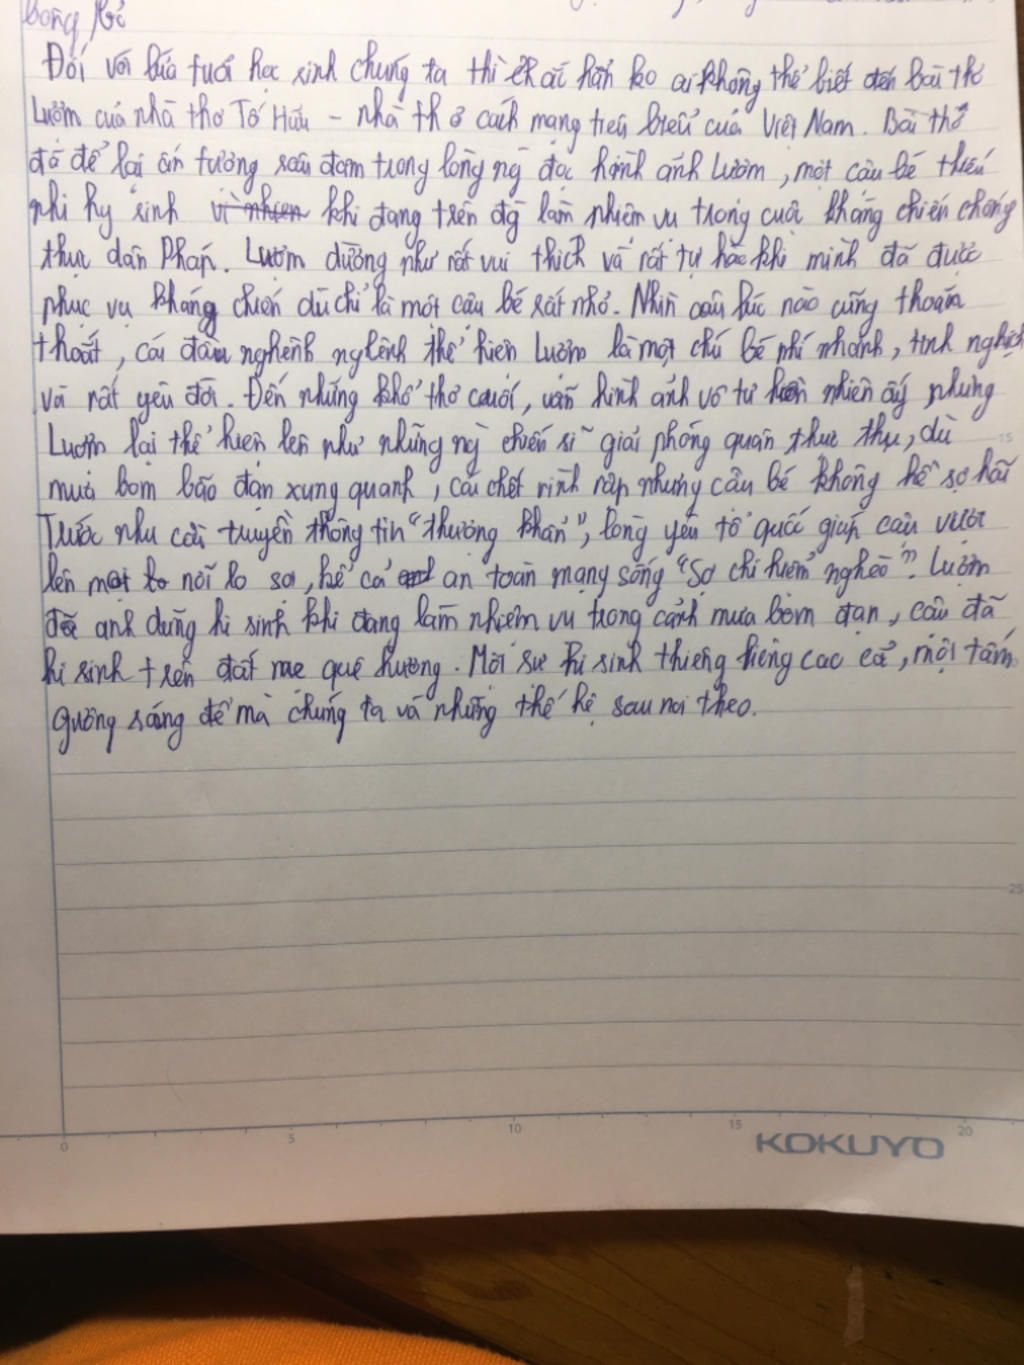 bóng
Đối với lứa tuổi học sinh chúng ta thì chắc hẳn ko ai không thể biết đến bài thơ
Lượm của nhà thơ Tố Hữu - nhà thơ cách mạng tiêu biểu của Việt Nam. Bài thơ
đó để lại ấn tượng sâu đậm trong lòng ng đọc hình ảnh Lượm, một cậu bé thiếu
nhi hy sinh khi đang trên đg làm nhiệm vụ trong cuộc kháng chiến chống
thực dân Pháp. Lượm dường như rất vui thích và rất tự hào khi mình đã được
phục vụ kháng chiến dù chỉ là một cậu bé rất nhỏ. Nhìn cậu lúc nào cũng thoăn
thoắt, cái đầu nghênh nghênh thể hiện Lượm là một chú bé nhí nhảnh, tinh nghịch
và rất yêu đời. Đến những khổ thơ cuối, vẫn hình ảnh vô tư hồn nhiên ấy nhưng
Lượm lại thể hiện lên như những ng chiến sĩ giải phóng quân thực thụ, dù
mưa bom bão đạn xung quanh, cái chết rình rập nhưng cậu bé không hề sợ hãi
Trước nhu cầu truyền thông tin "thượng khẩn", lòng yêu tổ quốc giúp cậu vượt
lên nỗi lo sợ, kể cả an toàn mạng sống "Sợ chi hiểm nghèo". Lượm
đã anh dũng hi sinh khi đang làm nhiệm vụ trong cảnh mưa bom đạn, cậu đã
hi sinh trên đất mẹ quê hương. Một sự hi sinh thiêng liêng cao cả, một tấm
gương sáng để mà chúng ta và những thế hệ sau noi theo.
15
25
0 5 10 15 20
KOKUYO